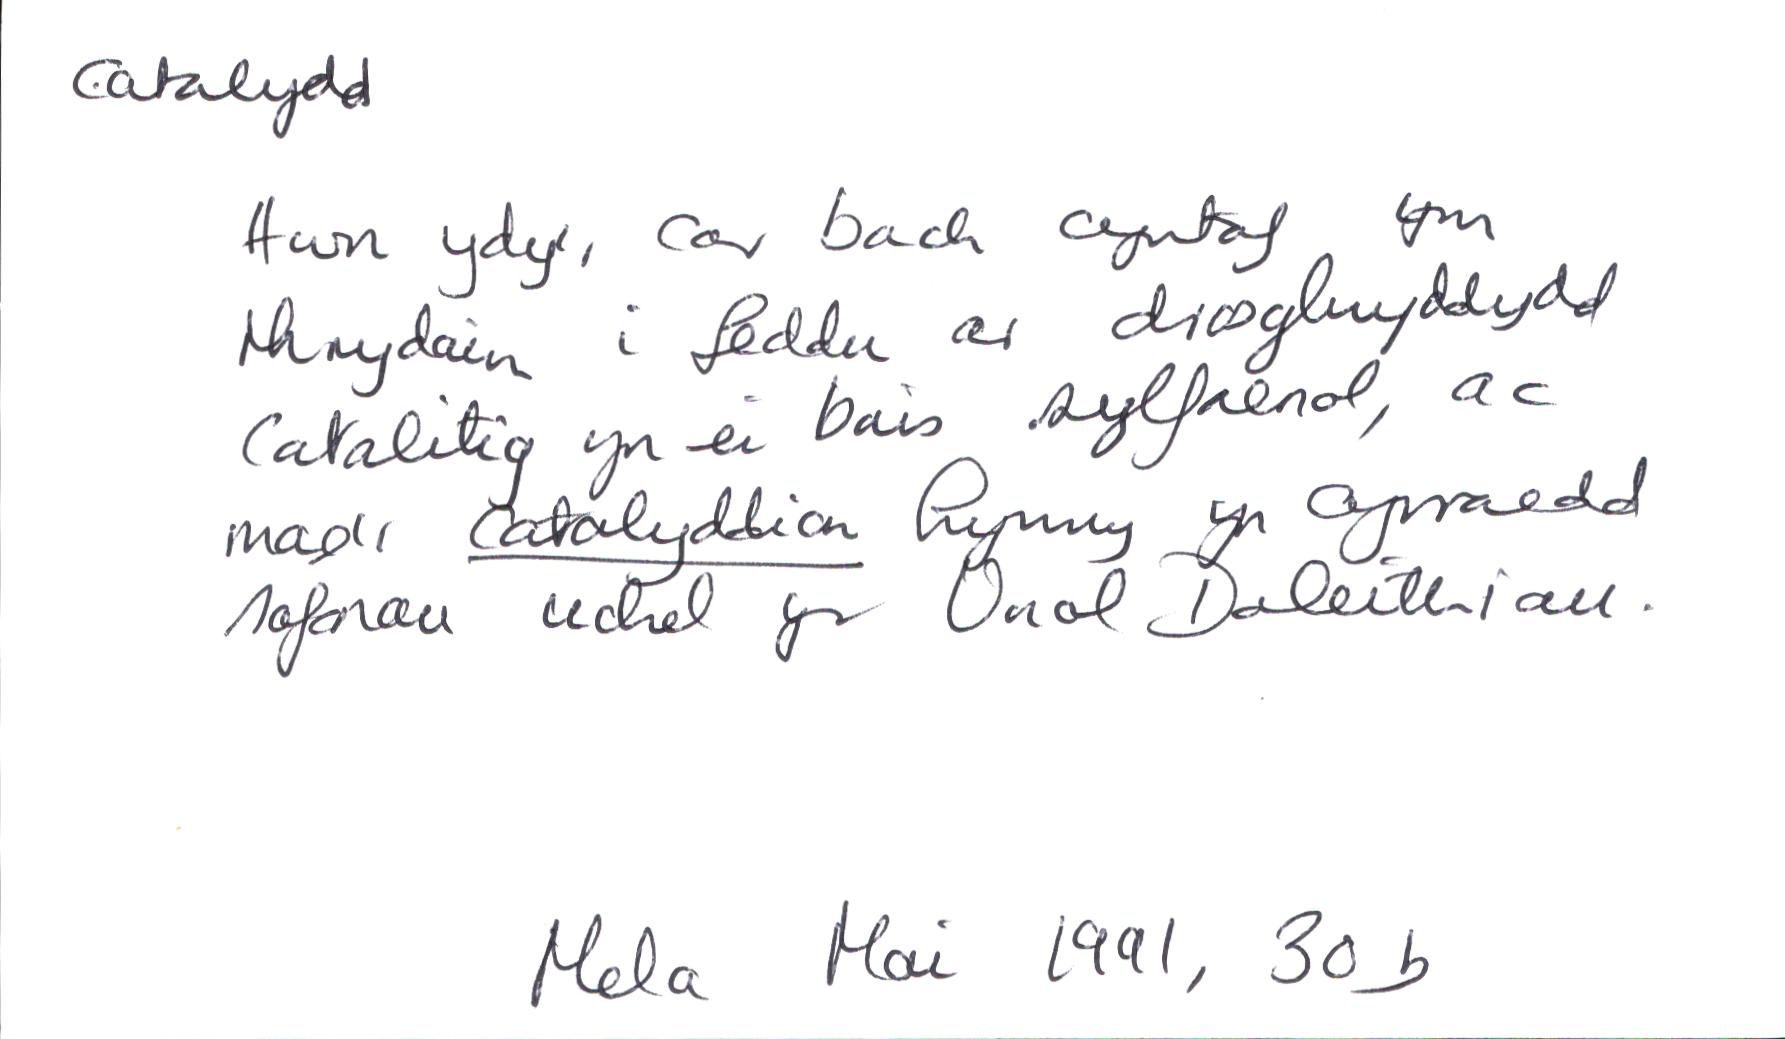 Catalydd
Hwn ydy'r car bach cyntaf ym
Mhrydain i feddu ar drosglwyddydd
Catalitig yn ei bais sylfaenol, ac
mae'r catalyddion hynny yn cyrraedd
safonau uchel yr Unol Daleithiau.
Mela Mai 1991, 30 b